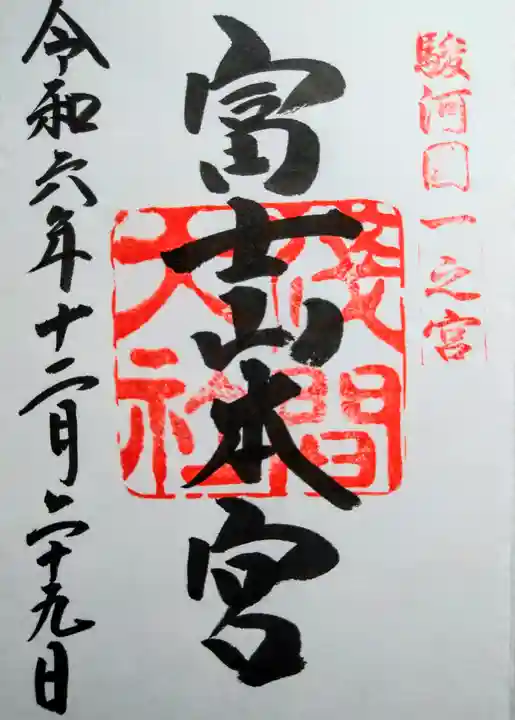 駿河国一之宮
富士山本宮
浅間
大社
令和六年十二月二十九日